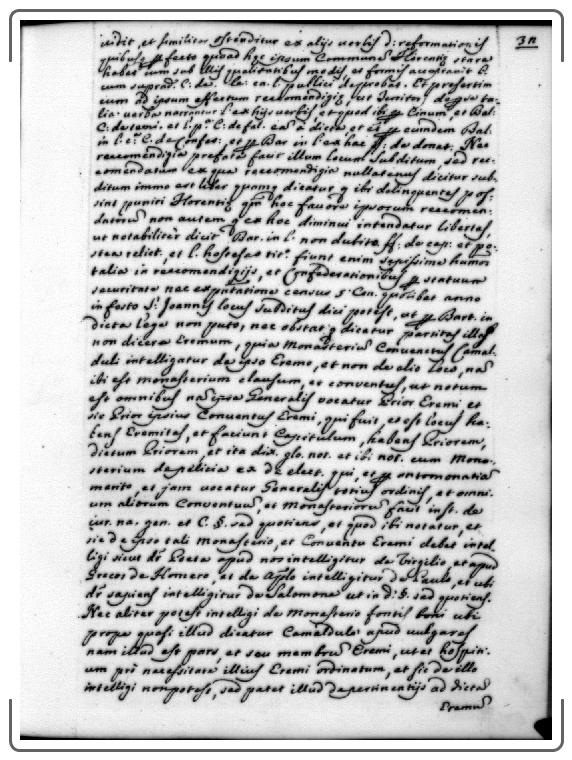 vidit, et similiter ostenditur ex alijs verbis d: reformationis
quibus profecto quoad hoc ipsum Commune Florentiæ stare
habet cum sub illis qualitatibus modis, et formis
cum suprad. C: de publici de probat. Et presertim
cum ad ipsum effectum recomendigiæ, ut
lia verba narrantur ex hijs verbis et quod ibi per Cinum, et Bal:
C: de testi. et l. C: de fal. ea dicta, et ibi per eumdem Bal.
in l. C: de Confess. et per Bar in l. ex hoc ff: de donat. Nec
reccomendigia prefata facit illum locum subditum, sed rec:
comendatum ex qua reccomendigia nullatenus dicitur sub:
ditum immo est liber quamq dicatur q ibi delinquentes pos:
sint puniri Florentiæ, qm hoc favore ipsorum reccomen:
datorum non autem q ex hoc diminui intendatur libertas,
ut notabiliter dicit Bar. in l. non dubito ff: de cap: et po:
stea relict. et l. hostes fiunt enim sepissime humoi
talia in reccomendigijs, et Confederationibus per statuum
securitate nec ex prestatione census 5 Con. quolibet anno
in festo S. Joannes locus subditus dici potest, ut per Bart. in
dicta lege non puto, nec obstat q dicatur partitas illas
non dicere Eremum, quia Monasterium Conventus Camal:
duli intelligatur de ipso Eremo, et non de alio loco, nam
ibi est monasterium clausum, et conventus, ut notum
est omnibus nam ipse Generalis vocatur Prior Eremi et
sic Prior ipsius Conventus Eremi, qui fuit, et est locus ha:
bens Eremitas, et faciunt Capitulum, habens Priorem,
dictum Priorem, et ita dix. glo. not. et ibi not. cum Mona:
sterium de ex de elect. qui, et per ontomonatia
merito, et jam vocatur Generalis totius ordinis, et omni:
um aliorum Conventuum, et Monasteriorum facit inst. de
iur. na. gen. et C. §. sed quotiens, et quod ibi notatur, et
sic de ipso tali monasterio, et Conventu Eremi debet intel:
ligi sicut dr Poeta apud nos intelligitur de Virgilio, et apud
Grecos de Homero, et de Aplo intelligitur de Paulo, et ubi
dr sapiens intelligitur de Salomone ut in d: §. sed quotiens.
Nec aliter potest intelligi de Monasterio fontis boni ubi
prope quasi illud dicatur Camaldule apud vulgares
nam illud est pars, et seu membrum Eremi, ut et hospiti:
um pro necessitate illius Eremi ordinatum, et sic de illo
intelligi non potest, sed patet illud de pertinentijs ad dictam
Eremum